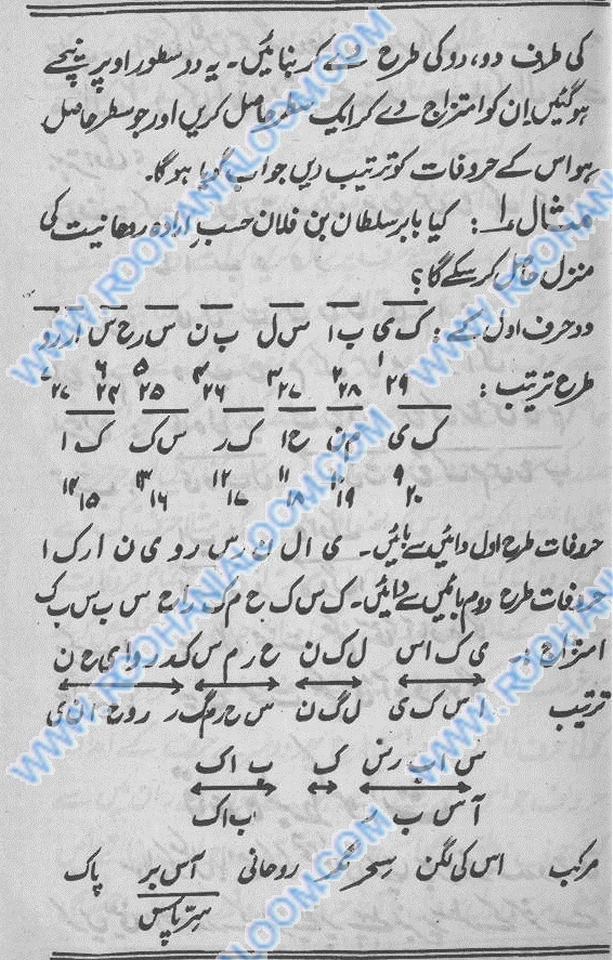 کی طرف دو، دو کی طرح دے کر بنائیں۔ یہ دو سطور اوپر نیچے
ہو گئیں ان کو امتزاج دے کر ایک سطر حاصل کریں اور جو سطر حاصل
ہو اس کے حروفات کو ترتیب دیں جواب گویا ہو گا۔
مثال ۱: کیا بابر سلطان بن فلان حسب ارادہ روحانیت کی
منزل حاصل کر سکے گا؟
دو حرف اول کے: ک ی ب ا س ل ب ن س ر ح س ا ر و
طرح ترتیب: ۱ ۲۹ ۲ ۲۸ ۳ ۲۷ ۴ ۲۶ ۵ ۲۵ ۶
ک ی م ن ح ا ک ر س ک ک ا
۹ ۲۰ ۱۹ ۱۱ ۱۸ ۱۲ ۱۷ ۱۳ ۱۶ ۱۴ ۱۵
حروفات طرح اول دائیں سے بائیں۔ ی ا ل ن ر س ر و ی ن ا ر ک ا
حروفات طرح دوم بائیں سے دائیں۔ ک س ک ح م ک ر ا ح س ب س ب ک
امتزاج :- ی ک ا س ل ک ن ح ر م س ک د ر و ا ی ح ن
ترتیب ا س ک ی ل گ ن س ح ر م گ ر ر و ح ا ن ی
س ا ب ر س ک ب ا ک
آ س ب ر ب ا ک
مرکب اس کی لگن سحر مگر روحانی آس بر پاک
ہر پاس
WWW.ROOHANIALOOM.COM
WWW.ROOHANIALOOM.COM
WWW.ROOHANIALOOM.COM
WWW.ROOHANIALOOM.COM